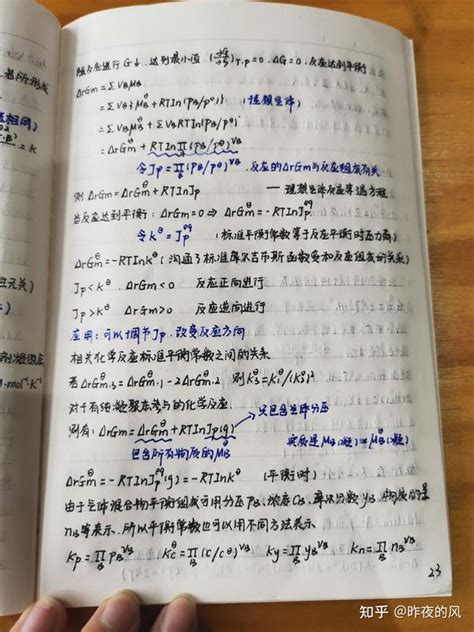 随反应进行G↓,达到最小值,(∂G/∂ξ)T.p=0.ΔG=0.反应达到平衡
ΔrGm=ΣVBμB
=ΣVB{μB^θ+RTIn(PB/p^θ)} (理想气体)
=ΣVBμB^θ+ΣVBRTIn(PB/p^θ)
=ΔrGm^θ+RTIn∏B(PB/p^θ)^VB
令Jp=∏B(PB/p^θ)^VB.反应的ΔrGm与反应组成有关
则ΔrGm=ΔrGm^θ+RTInJp ——理想气体反应等温方程
当反应达到平衡:ΔrGm=0⇒ΔrGm^θ=-RTInJp^eq
令K^θ=Jp^eq (标准平衡常数等于反应平衡时压力商)
ΔrGm^θ=-RTInK^θ(沟通了标准摩尔吉布斯函数变和反应组成的关系)
Jp<K^θ.ΔrGm<0 反应正向进行
Jp>K^θ ΔrGm>0 反应逆向进行
应用:可以调节Jp.改变反应方向
相关化学反应标准平衡常数之间的关系
若ΔrGm.3=ΔrGm.1-2ΔrGm.2 则K3^θ=K1^θ/(K2^θ)²
对于有纯凝聚态参与的化学反应.
只包含气体分压
则有:ΔrGm=ΔrGm^θ+RTInJp(g)
包含所有物质的μB^θ 实质是μB(凝)=μB^θ(凝)
ΔrGm^θ=-RTInJp^eq(g)=-RTInK^θ (平衡时)
由于气体混合物平衡组成可用分压PB、浓度CB、摩尔分数yB、物质的量
nB等表示.所以平衡常数也可以用不同方法表示
Kp=∏B PB^VB Kc^θ=∏B(c/c^θ)^VB Ky=∏B yB^VB Kn=∏B nB^VB
23
知乎 @昨夜的风